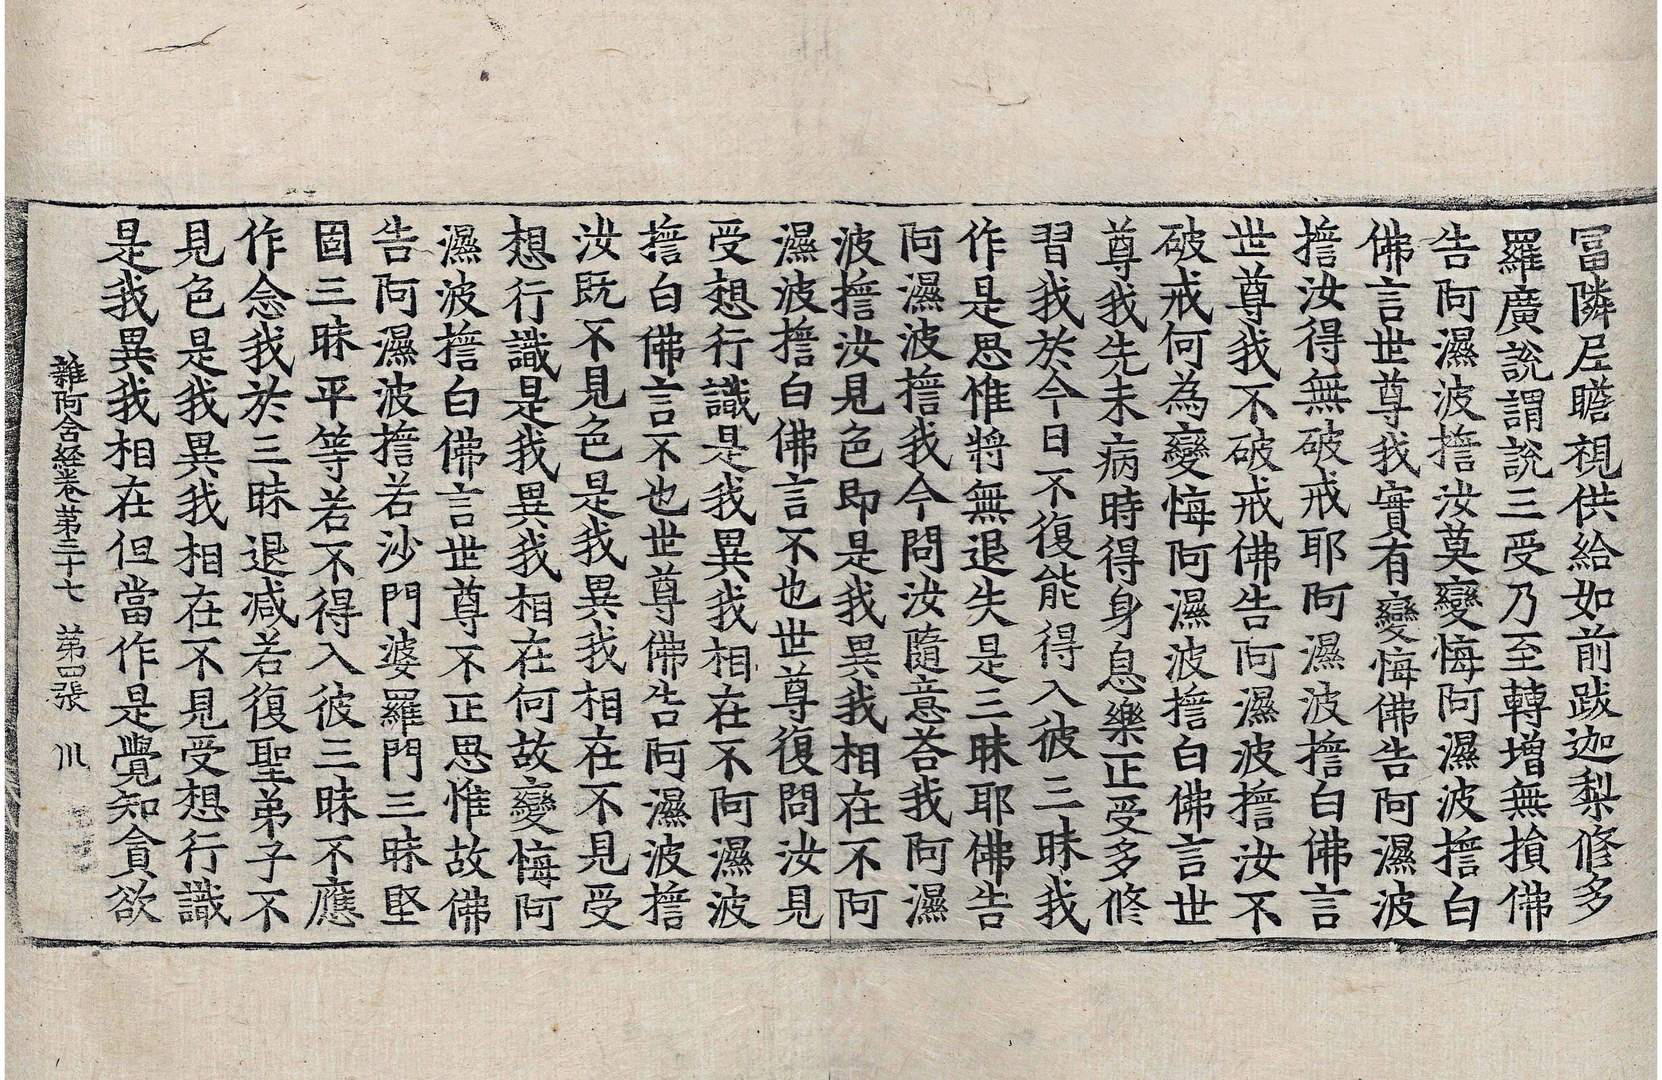 冨隣尼瞻視供給如前跋迦梨修多
羅廣說謂說三受乃至轉增無損佛
告阿濕波擔汝莫變悔阿濕波擔白
佛言世尊我實有變悔佛告阿濕波
擔汝得無破戒耶阿濕波擔白佛言
世尊我不破戒佛告阿濕波擔汝不
破戒何為變悔阿濕波擔白佛言世
尊我先未病時得身息樂正受多修
習我於今日不復能得入彼三昧我
作是思惟將無退失是三昧耶佛告
阿濕波擔我今問汝隨意荅我阿濕
波擔汝見色即是我異我相在不阿
濕波擔白佛言不也世尊復問汝見
受想行識是我異我相在不阿濕波
擔白佛言不也世尊佛告阿濕波擔
汝既不見色是我異我相在不見受
想行識是我異我相在何故變悔阿
濕波擔白佛言世尊不正思惟故佛
告阿濕波擔若沙門婆羅門三昧堅
固三昧平等若不得入彼三昧不應
作念我於三昧退减若復聖弟子不
見色是我異我相在不見受想行識
是我異我相在但當作是覺知貪欲
雜阿含経卷苐三十七 苐四張 川